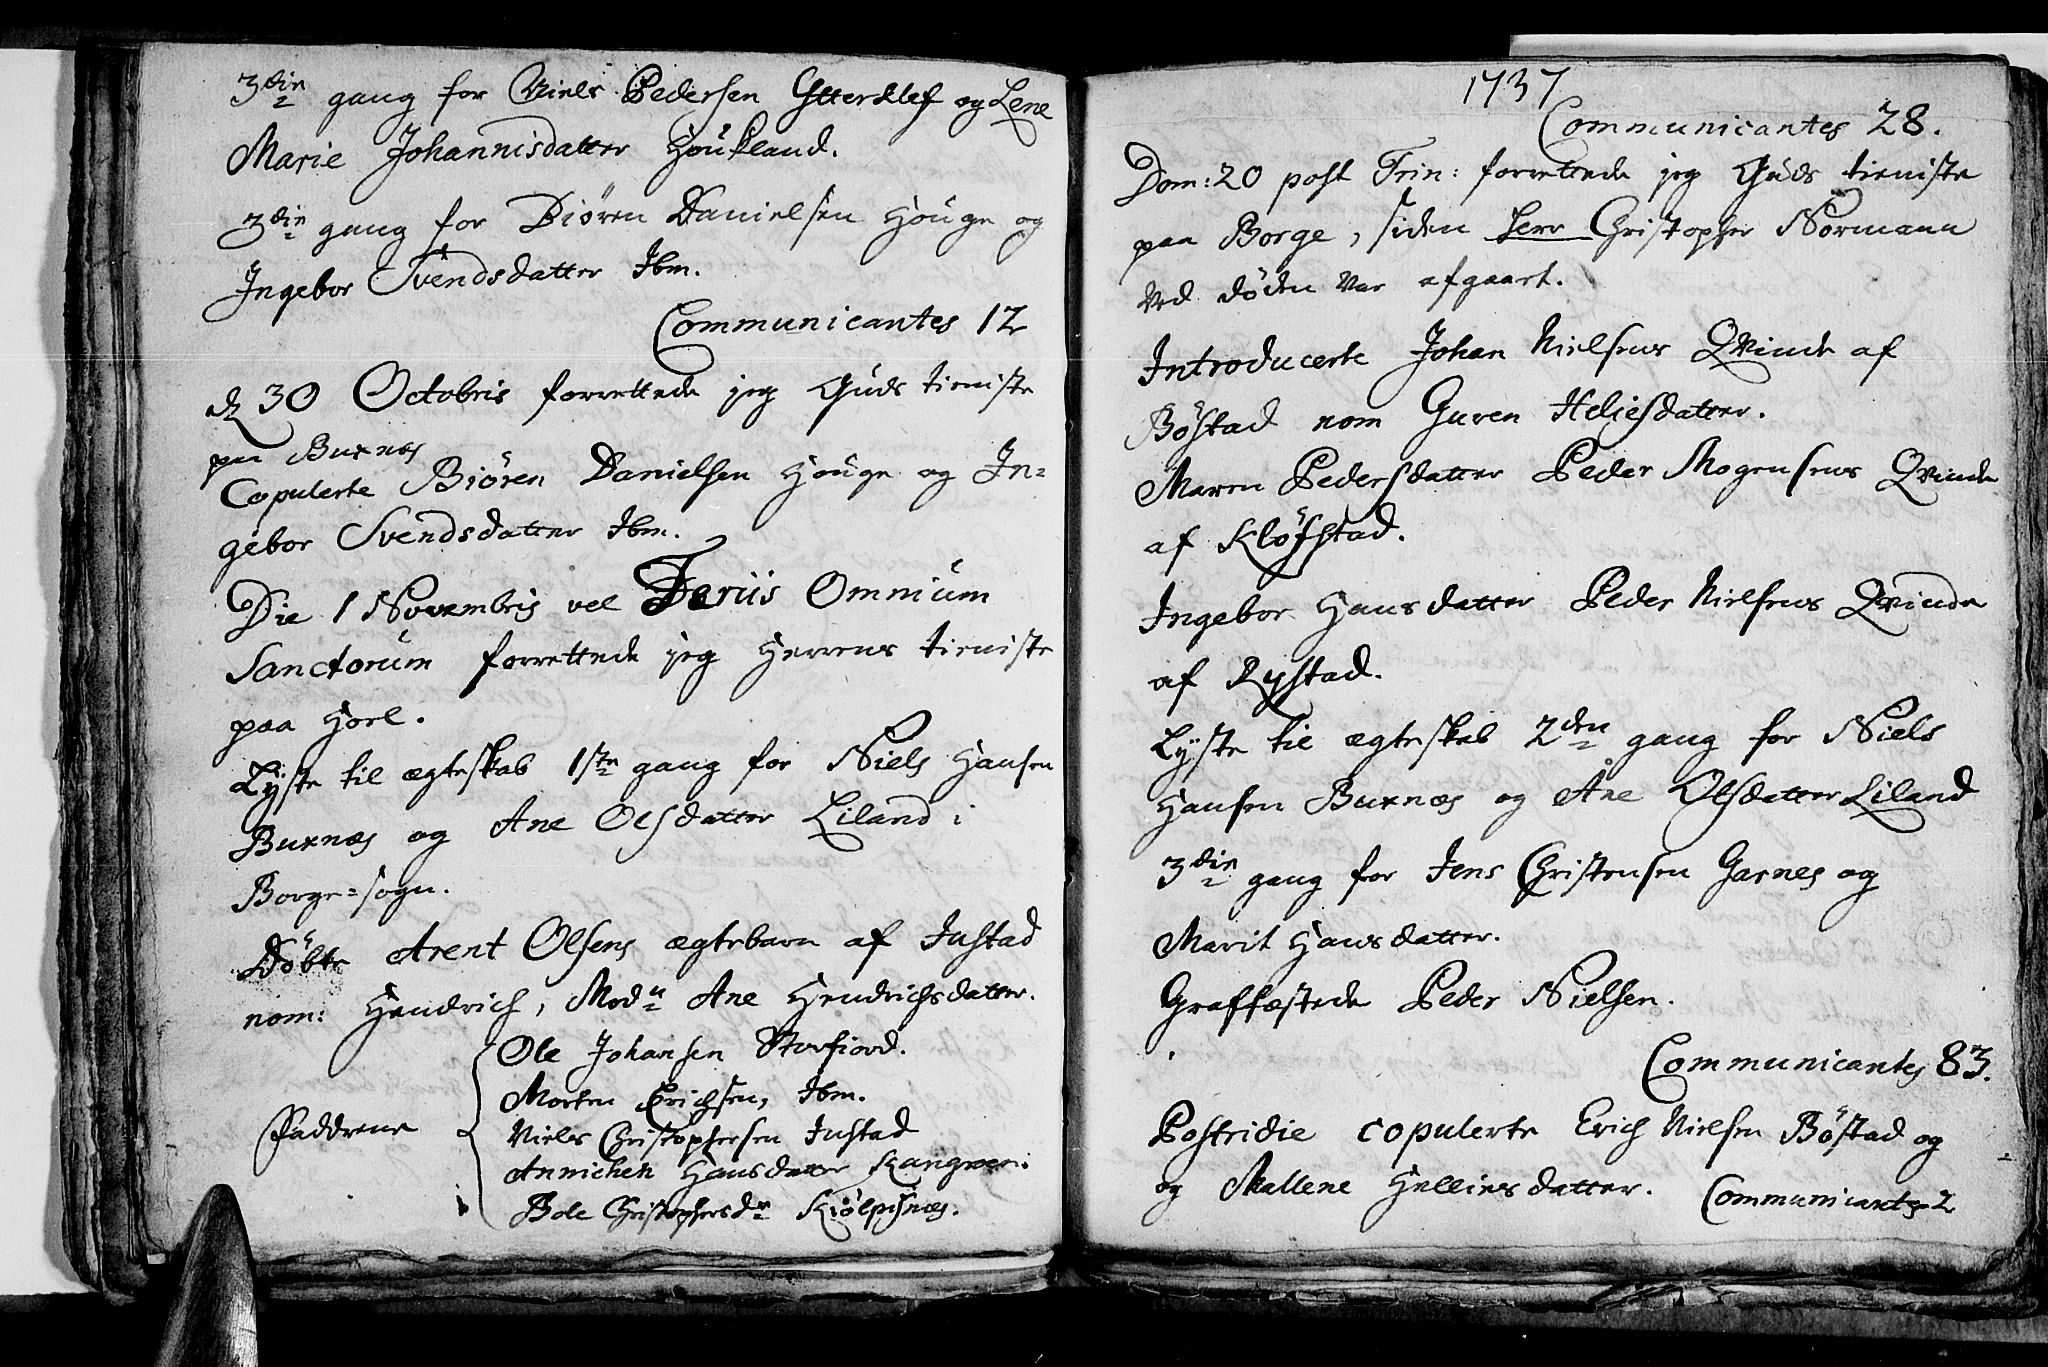 3die gang for Niels Pedersen Ytterklef og Lene
Marie Johannisdatter Houkland.
3die gang for Biören Danielsen Houge og
Ingebor Svendsdatter Ibm.
Communicantes 12
d 30 Octobris forrettede jeg Guds tieniste
paa Buxnæs
Copulerte Biören Danielsen Houge og In=
gebor Svendsdatter Ibm.
Die 1 Novembris vel Feriis Omnium
Sanctorum forrettede jeg Herrens tieniste
paa Horl.
Lyste til ægteskab 1ste gang for Niels Hansen
Buxnæs og Ane Olsdatter Liland i
Borge=sogn.
Döbte Arent Olsens ægtebarn af Justad
nom: Hendrich, Modn Ane Hendrichsdatter.
Ole Johansen Storfiord.
Morten Erichsen, Ibm.
Faddrene
Niels Christophersen Justad
Annichen Hansdatter
Bole Christophersdr Kiölpisnæs.
1737
Communicantes 28.
Dom: 20 post Trin: forrettede jeg Guds tieniste
paa Borge, siden Herr Christopher Normann
ved döden var afgaaet.
Introducerte Johan Nielsens Qvinde af
Böstad nom Guren Heliesdatter.
Maren Pedersdatter Peder Mogensens Qvinde
af Klöfstad.
Ingebor Hansdatter Peder Nielsens Qvinde
af Rystad.
Lyste til ægteskab 2den gang for Niels
Hansen Buxnæs og Ane Olsdatter Liland
3die gang for Jens Christensen Garnes og
Marit Hansdatter.
Graffæstede Peder Nielsen.
Communicantes 83.
Postridie copulerte Erich Nielsen Böstad og
og Mallene Helliesdatter. Communicantes 2